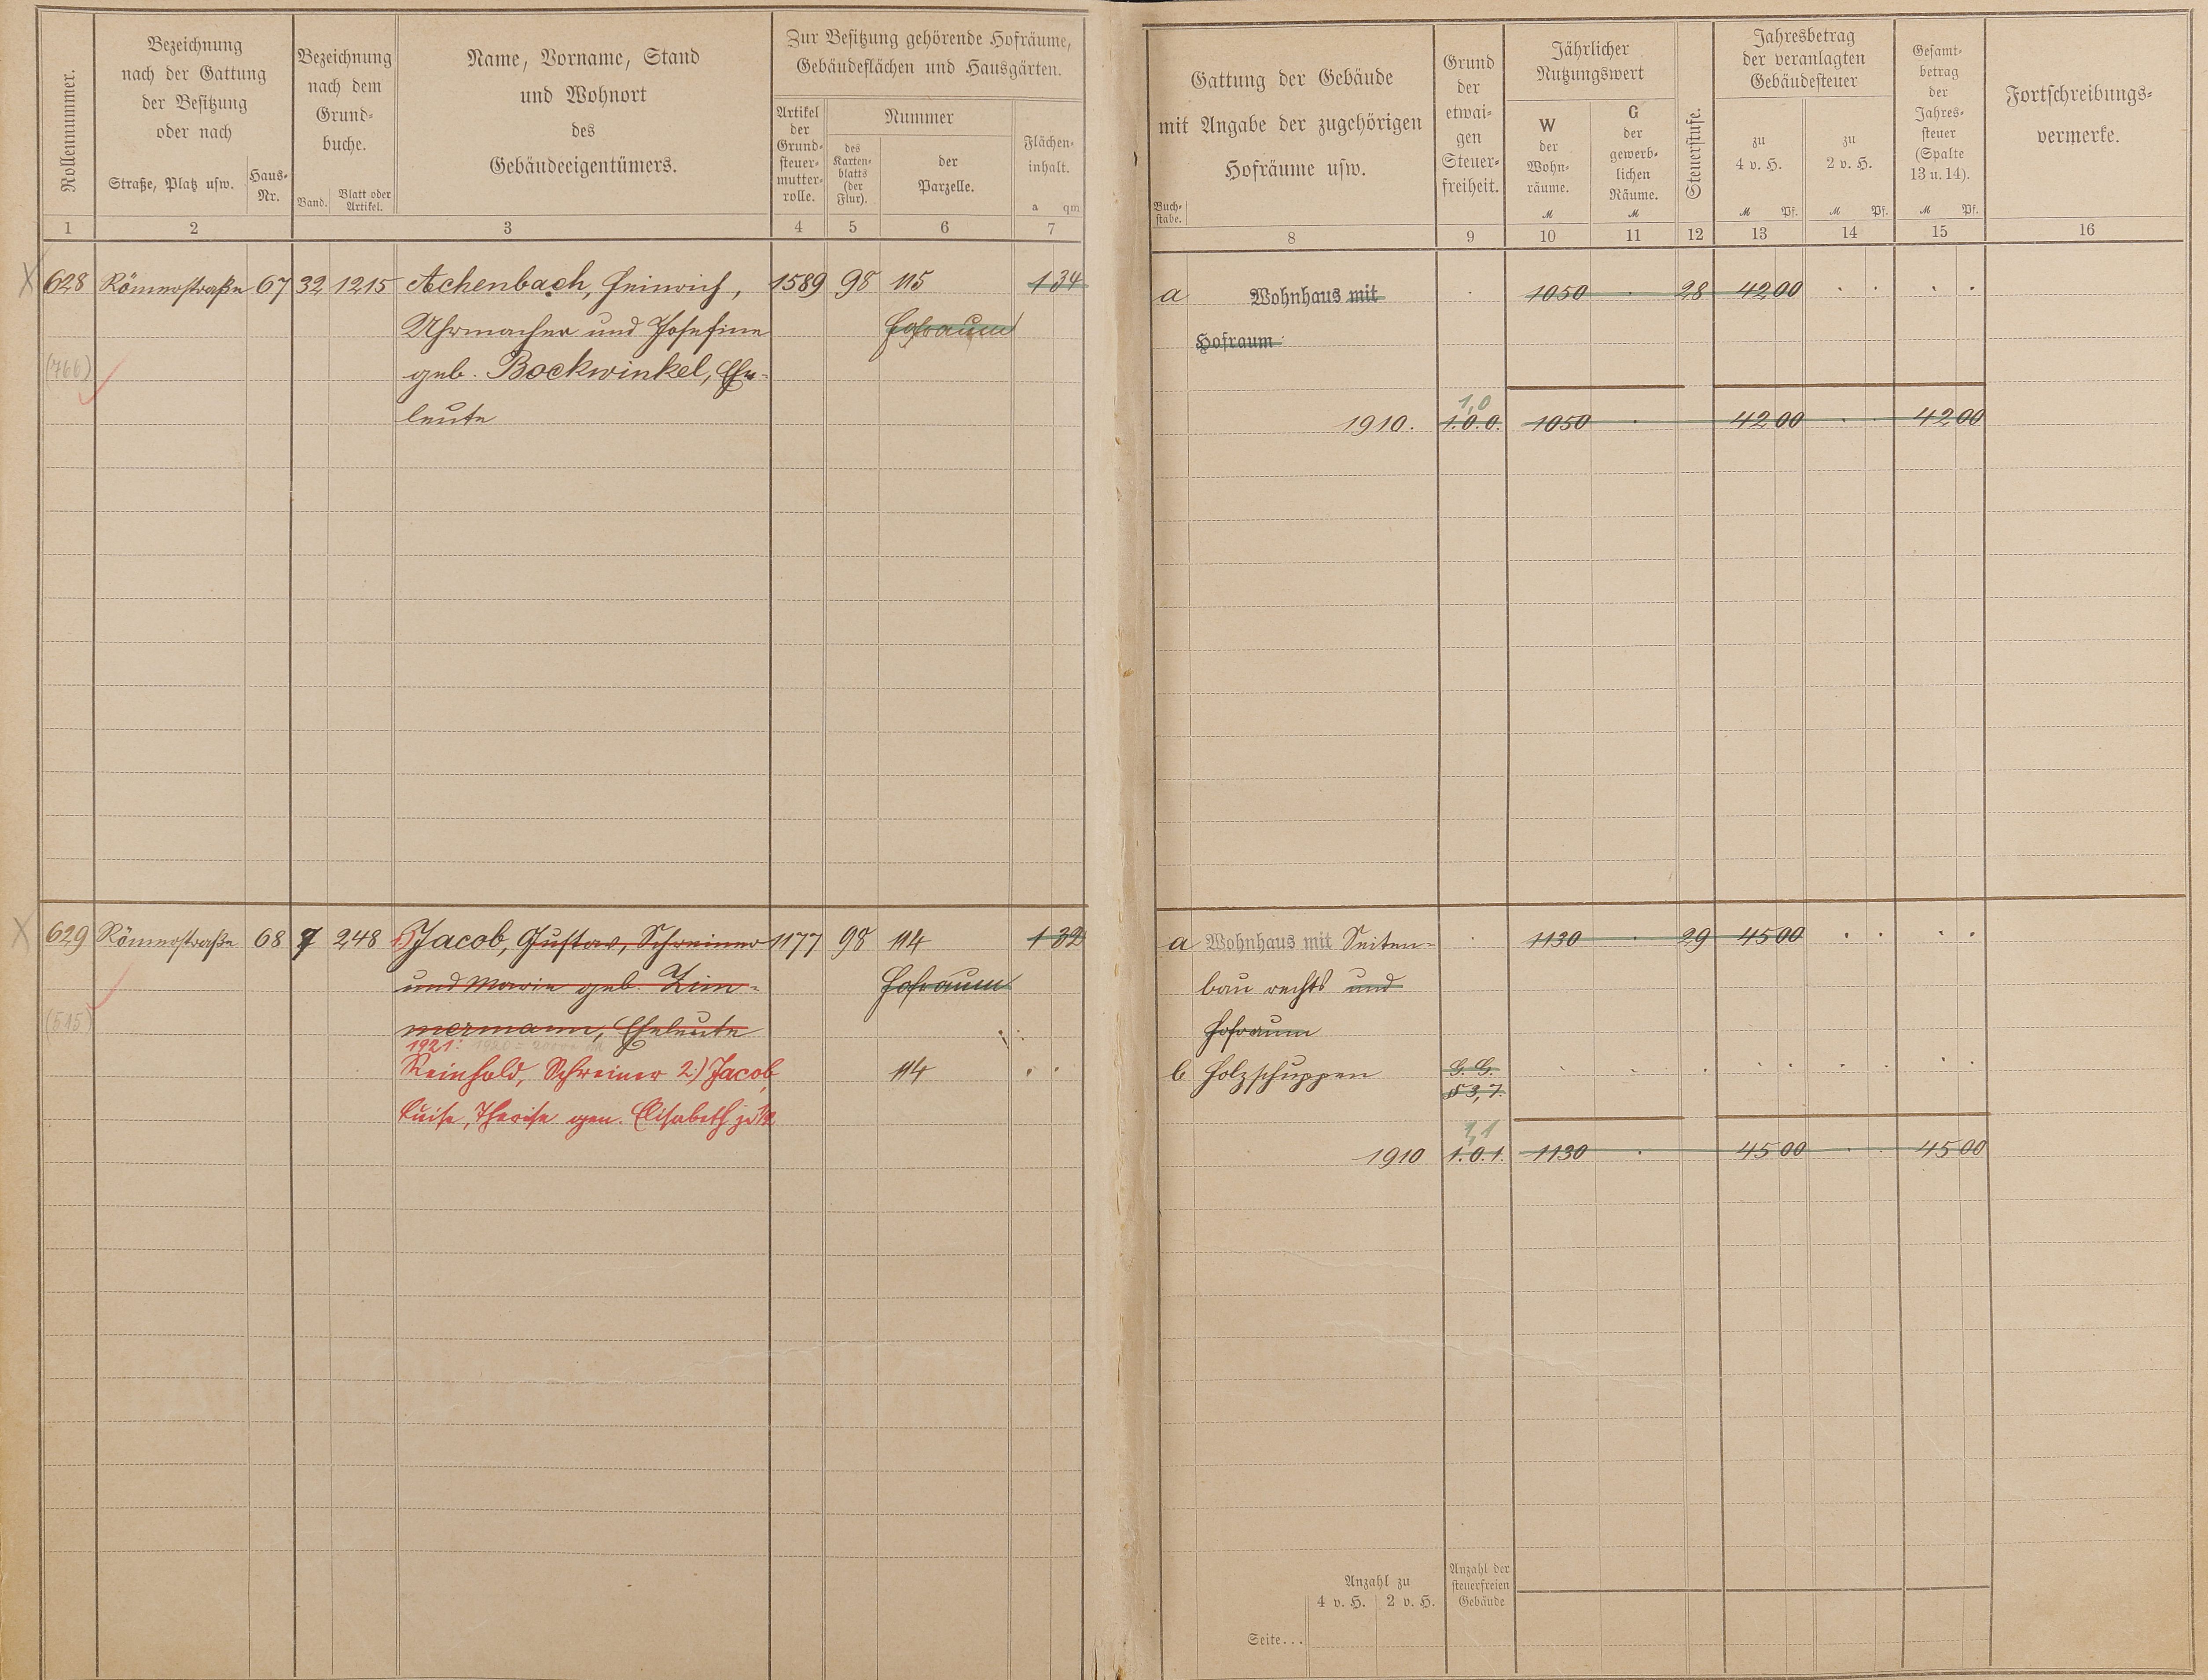 Rollennummer.
Bezeichnung
nach der Gattung
der Besitzung
oder nach
Straße, Platz usw.
Haus-
Nr.
Bezeichnung
nach dem
Grund-
buche.
Band.
Blatt oder
Artikel.
Name, Vorname, Stand
und Wohnort
des
Gebäudeeigentümers.
Zur Besitzung gehörende Hofräume,
Gebäudeflächen und Hausgärten.
Artikel
der
Grund-
steuer-
mutter-
rolle.
Nummer
des
Karten-
blatts
(der
Flur).
der
Parzelle.
Flächen-
inhalt.
a qm
1 2 3 4 5 6 7
628 Römerstraße 67 32 1215 Achenbach, Heinrich, 1589 98 115 1 34
Uhrmacher und Josefine Hofraum
(766)
geb. Bockwinkel, Ehe-
leute
629 Römerstraße 68 7 248 1) Jacob, Gustav, Schreiner 1177 98 114 1 32
und Marie geb. Zim- Hofraum
(515)
mermann, Eheleute
1921:
Reinhold, Schreiner 2.) Jacob 114
Luise, Therese gen. Elisabeth je 1/2
Buch-
stabe.
Gattung der Gebäude
mit Angabe der zugehörigen
Hofräume usw.
Grund
der
etwai-
gen
Steuer-
freiheit.
Jährlicher
Nutzungswert
W
der
Wohn-
räume.
M
G
der
gewerb-
lichen
Räume.
M
Steuerstufe.
Jahresbetrag
der veranlagten
Gebäudesteuer
zu
4 v. H.
M Pf.
zu
2 v. H.
M Pf.
Gesamt-
betrag
der
Jahres-
steuer
(Spalte
13 u. 14).
M Pf.
Fortschreibungs-
vermerke.
8 9 10 11 12 13 14 15 16
a Wohnhaus mit 1050 28 42 00
Hofraum
1,0
1910. 1.0.0. 1050 42 00 42 00
a Wohnhaus mit Seiten- 1130 29 45 00
bau rechts und
Hofraum
b Holzschuppen G. G.
§ 3,7.
1,1
1910 1.0.1. 1130 45 00 45 00
Anzahl zu
4 v. H. 2 v. H.
Anzahl der
steuerfreien
Gebäude
Seite...